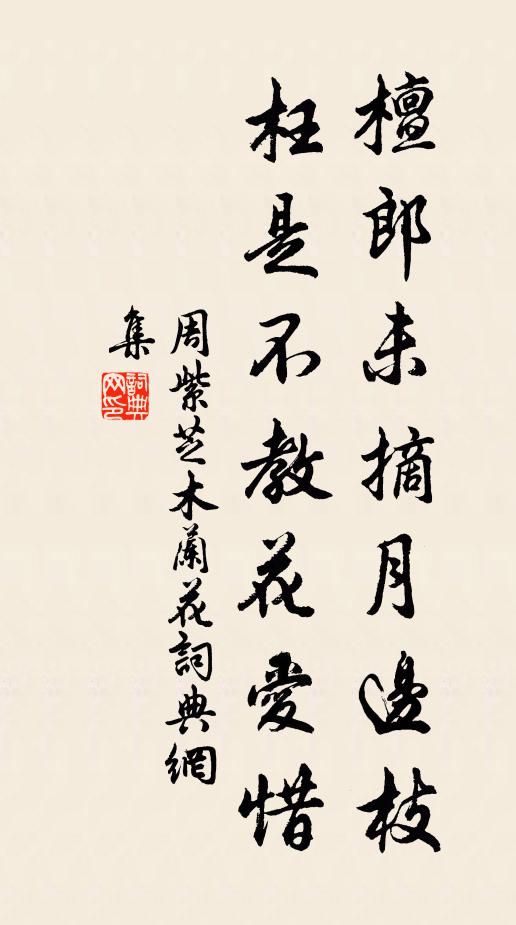 檀郎未摘月邊枝
枉是不教花愛惜
周紫芝木蘭花詞典網
集
詞典
网印